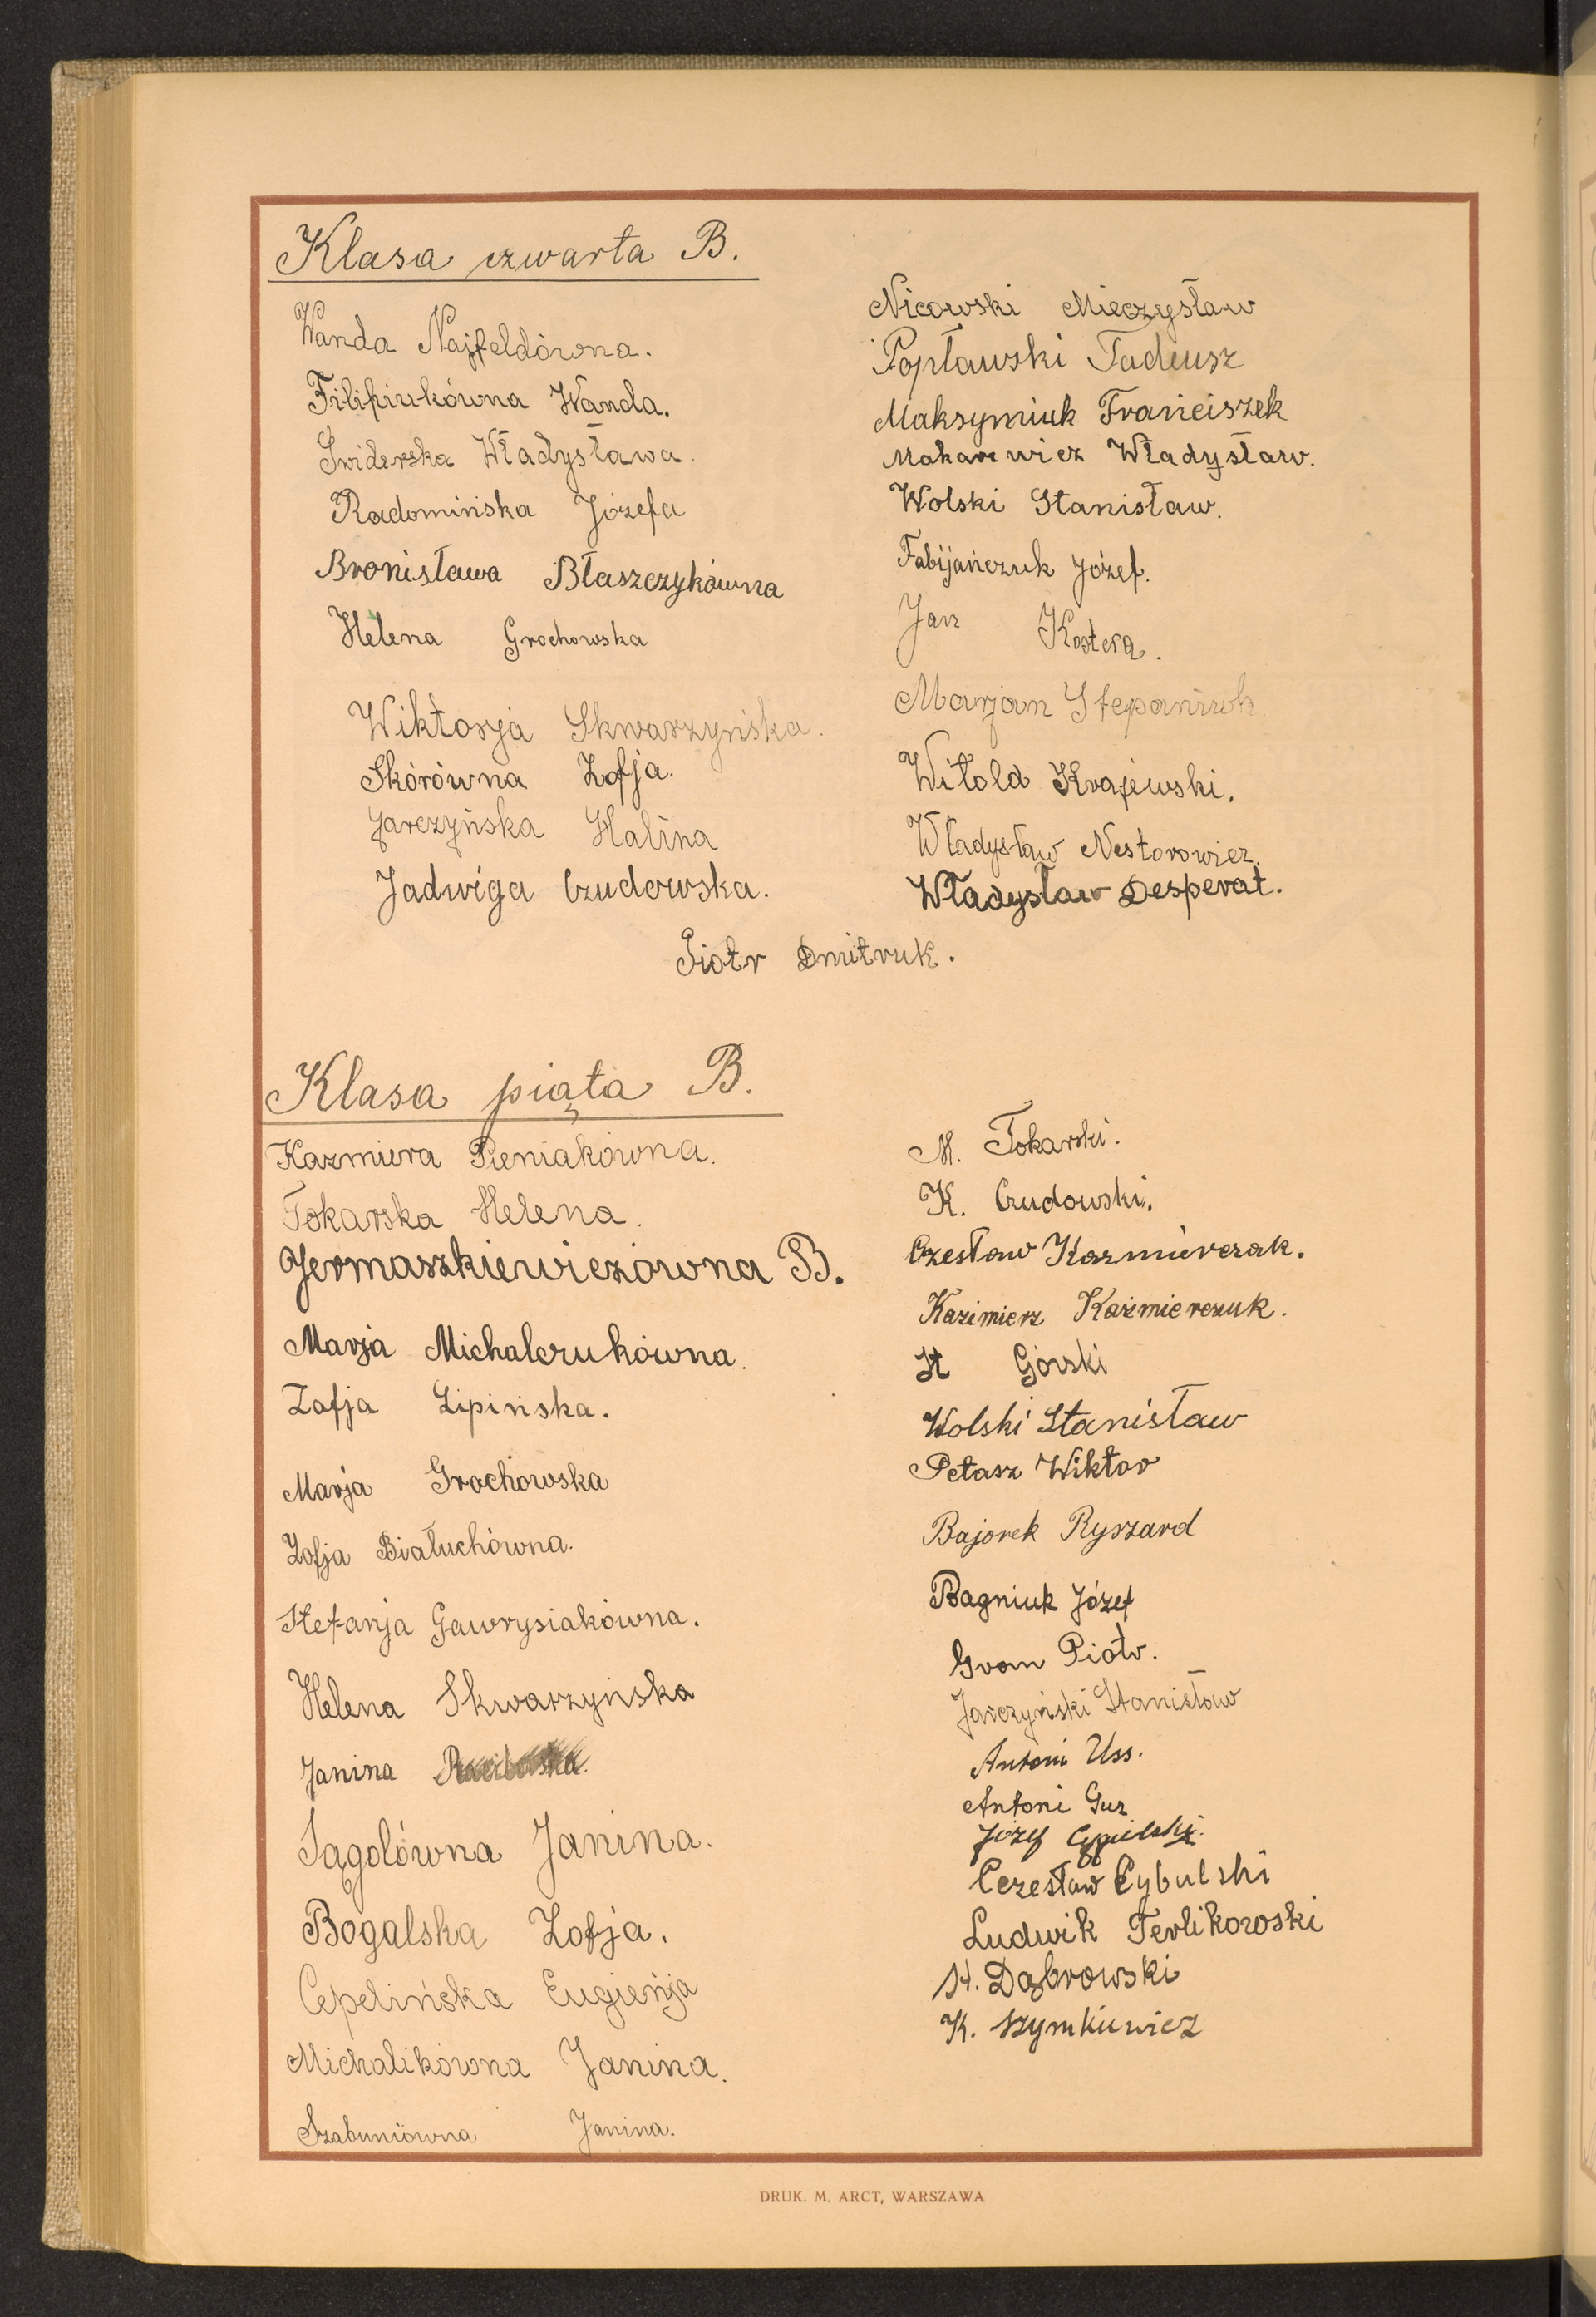 Klasa czwarta B.
Wanda Najfeldówna.
Filipiukówna Wanda.
Świderska Władysława.
Radomińska Józefa
Bronisława Błaszczykówna
Helena Grochowska
Wiktorja Skwarzyńska.
Skórówna Zofja.
Jarczyńska Halina
Jadwiga Czudowska.
Nicowski Mieczysław
Popławski Tadeusz
Maksymiuk Franciszek
Makarewicz Władysław.
Wolski Stanisław.
Fabijańczuk Józef.
Jan Kostera.
Marjan Stepaniuk
Witold Krajewski.
Władysław Nestorowicz.
Władysław Desperat.
Piotr Dmitruk.
Klasa piąta B.
Kazmiera Pieniakówna.
Tokarska Helena.
Jermaszkiewiczówna B.
Marja Michalczukówna.
Zofja Lipińska.
Marja Grochowska
Zofja Białuchówna.
Stefanja Gawrysiakówna.
Helena Skwarzyńska
Janina
Sągolówna Janina.
Bogalska Zofja.
Cepelińska Eugienja
Michalikówna Janina.
Szabuniówna Janina.
M. Tokarski.
K. Czudowski.
Czesław Kazmierczak.
Kazimierz Kaźmierczuk.
St Górski
Wolski Stanisław
Petasz Wiktor
Bajorek Ryszard
Bagniuk Józef
Grom Piotr.
Jarczyński Stanisław
Antoni Uss.
Antoni Guz
Józef
Czesław Cybulski
Ludwik Terlikowski
St. Dąbrowski
K. Szymkiewicz
DRUK. M. ARCT, WARSZAWA